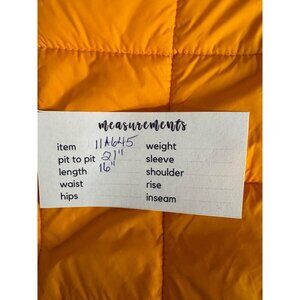 measurements
item 11A645 weight
pit to pit 21" sleeve
length 16" shoulder
waist rise
hips inseam